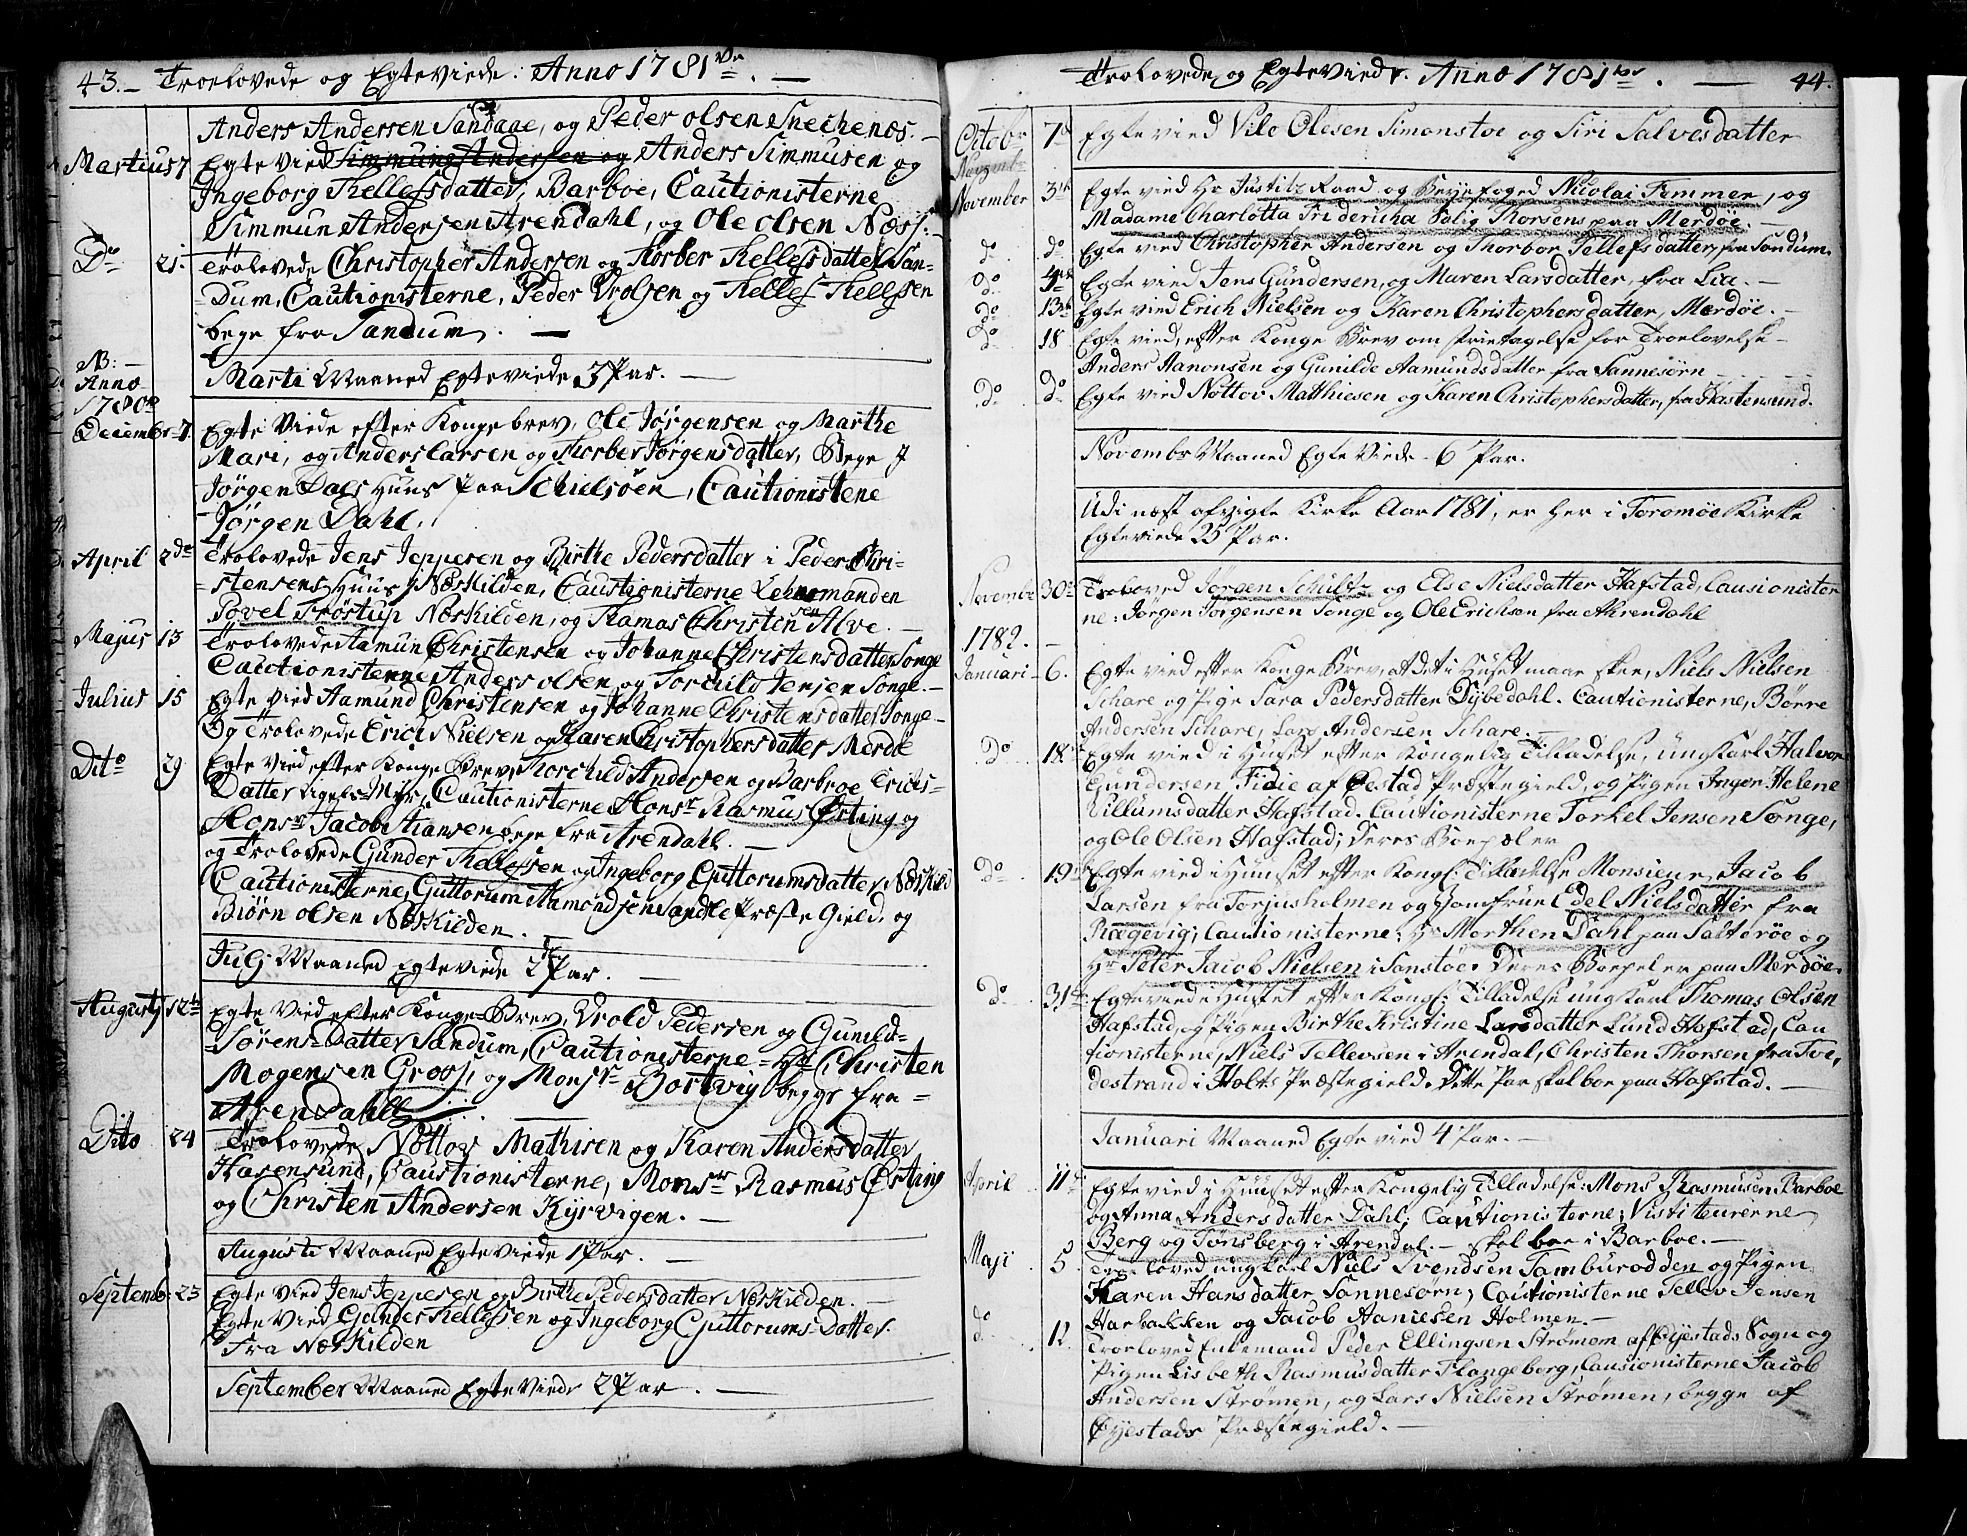 43. – Troelovede og Egteviede. Anno 1781ve. –
Anders Andersen Sandaae, og Peder olsen Snechenæs. –
Martius 7 Egte Vied Simmun Andersen og Anders Simmusen og
Ingeborg Kellefsdatter, Barboe, Cautionisterne
Simmun Andersen Arendahl, og Ole olsen Næss. –
Do 21. Trolovede Christopher Andersen og Torber Kellefsdatter San-
-dum, Cautionisterne, Peder Vrolsen og Kellef Kellefsen
bege fra Sandum. –
Marti Maaned Egteviede 3 Par. –
NB: –
Anno
1780
Decembr 7. Egte Viede efter Konge brev, Ole Jørgensen og Marthe
Mari, og Anders Larsen og Thorber Jørgensdatter, Bege J
Jørgen Dals Huus paa Schielsøen, Cautionistene
Jørgen Dahl.
April 2de Trolovede Jens Jeppesen og Birthe Pedersdatter i Peder Chri-
-stensens Huus J Næskilden, Caustionisterne Lehnsmanden
Povel Trøstup Neskilden, og Thamas Christensen Alve. –
Majus 13 Trolovede Aamun Christensen og Johanne Christensdatter Songe
Cautionisterne Anders olsen og Torchild Jensen Songe. –
Julius 15 Egte Vied Aamund Christensen og Johanne Christensdatter Songe –
Og Trolovede Erich Nielsen og Karen Christophersdatter Merdøe
Dito 29 Egte Vied efter Konge Brev Torchild Andersen og Barbroe Erichs-
Datter Myr, Cautionisterne Monsr Rasmus Ørsting og
Monsr Jacob Stiansen bege fra Arendahl. –
og Trolovede Gunder Kellefsen og Ingeborg Guttorumsdatter Næskild
Cautionisterne, Guttorum Aamondsen Landle Præste Gield, og
Biørn olsen Næskilden. –
July Maaned Egteviede 2 Par. –
Augusty 12te Egte Vied efter Konge Brev, Vrold Pedersen og Gunild-
-Sørens-Datter Sandum, Cautionisterne Hr Christen
Mogensen Groos, og Monsr Bortvig begge fra –
Arendahl.
Dito 24 Trolovede Nottov Mathisen og Karen Andersdatter
Hasensund, Caustionisterne, Monsr Rasmus Ørsting
og Christen Andersen Kyrvigen. –
Augusti Maaned Egteviede 1 Par. –
Septemb: 23 Egte Vied Jens Jeppesen og Birthe Pedersdatter Næskilden. –
Egte Vied Gunder Kellefsen og Ingeborg Guttorums-Datter
Fra Næskilden
September Maaned Egteviede 2 Par. –
Trolovede og Egteviede. Anno 1781. – 44.
Octobr 7de Egte vied Vilo Olesen Simonstoe og Siri Salvesdatter
Novembr
November 3de Egte vied Hr Justitz Raad og Byefoged Nicolai Femmer, og
Madame Charlotta Fridericha Salig Thorsens paa Merdøe. –
do do Egte vied Christopher Andersen og Thorbor Tellefsdatter fra Sandum.
do 4de Egte vied Jens Gundersen, og Maren Larsdatter, fra Lia. –
do 13de Egte vied Erich Nielsen og Karen Christophersdatter, Merdøe. –
do 18 Egte vied, efter Konge Brev om fritagelse for Troelovelse –
Anders Aanonsen og Gunilde Aamundsdatter fra Sannesørn – – –
do do Egte vied Nottov Matthiesen og Karen Christophersdatter, fra Hastensund.
Novembr Maaned Egte Viede 6 Par.
Udi næst afvigte Kirke Aar 1781, er her i Toromøe Kirke
Egteviede 25 Par.
Novembr 30te Troeloved Jørgen Schultz og Else Nielsdatter Hafstad, Causionister
ne: Jørgen Jørgensen Songe og Ole Erichsen fra Ahrendahl
1782. –
Januari – 6. Egte vied efter Konge Brev, at det i Huset maae skee, Niels Nielsen
Schare og Pige Sara Pedersdatter Dybedahl. Cautionisterne, Børre
Andersen Schare, Lars Andersen Schare. –
Do 18de Egte vied i Huuset efter Kongelig Tilladelse, ungkarl Halvor
Gundersen Fidie af Øestad Præstegield, og Pigen Inger Helene
Villumsdatter Hafstad. Cautionisterne Torkel Jensen Songe,
og Ole Olsen Hafstad; Deres Boepæl er
do 19de Egte vied i Huuset efter Kongl: Tilladelse Monsieur, Jacob
Larsen fra Torjusholmen og Jomfrue Edel Nielsdatter fra
Rægevig; Cautionisterne: Hr Morthen Dahl paa Salterøe og
Hr Peter Jacob Nielsen i Sanstøe. Deres Boepel er paa Merdøe.
do 31te Egte viede i Huset efter Kongl: Tilladelse ungkarl Thomas Olsen
Hafstad, og Pigen Birthe Kristine Larsdatter Lund Hafstad, Cau
tionisterne, Niels Tellevsen i Arendal, Christen Thorsen fra Tve,
destrand i Holts Præstegield. Dette Par skal boe paa Hafstad. –
Januari Maaned Egte vied 4 Par. –
April 11te Egte vied i Huuset efter Kongelig Tilladelse: Mons Rasmusen Barboe
og Anna Andersdatter Dahl; Cautionisterne; Visiteurerne
Berg og Tønsberg i Arendal. – skal boe i Barboe. –
Maji 5 Troeloved ung karl Niels Svendsen Tamburodden og Pigen
Karen Hansdatter Sannesørn; Cautionisterne Tellev Jensen
Harbakken og Jacob Haniesen Holmen. –
do 12 Troeloved Enkemand Peder Ellingsen Strømom af Øyestads Sogn og
Pigen Lisbeth Rasmusdatter Flangeborg, Causionisterne Jacob
Andersen Strømen, og Lars Nielsen Strømen, begge af
Øyestads Præstegield. –